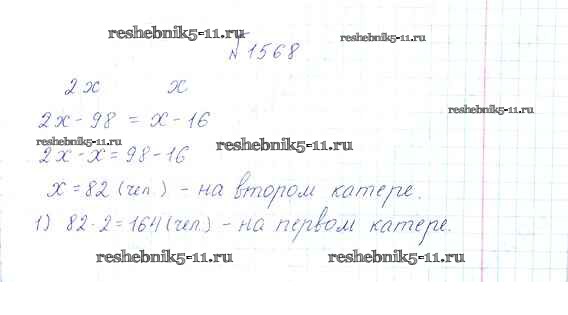 reshebnik5-11.ru
reshebnik5-11.ru
№1568
2x x
reshebnik5-11.ru
2x - 98 = x - 16
reshebnik5-11.ru
reshebnik5-11.ru
2x - x = 98 - 16
x = 82 (чел.) - на втором катере.
1) 82 · 2 = 164 (чел.) - на первом катере.
reshebnik5-11.ru reshebnik5-11.ru